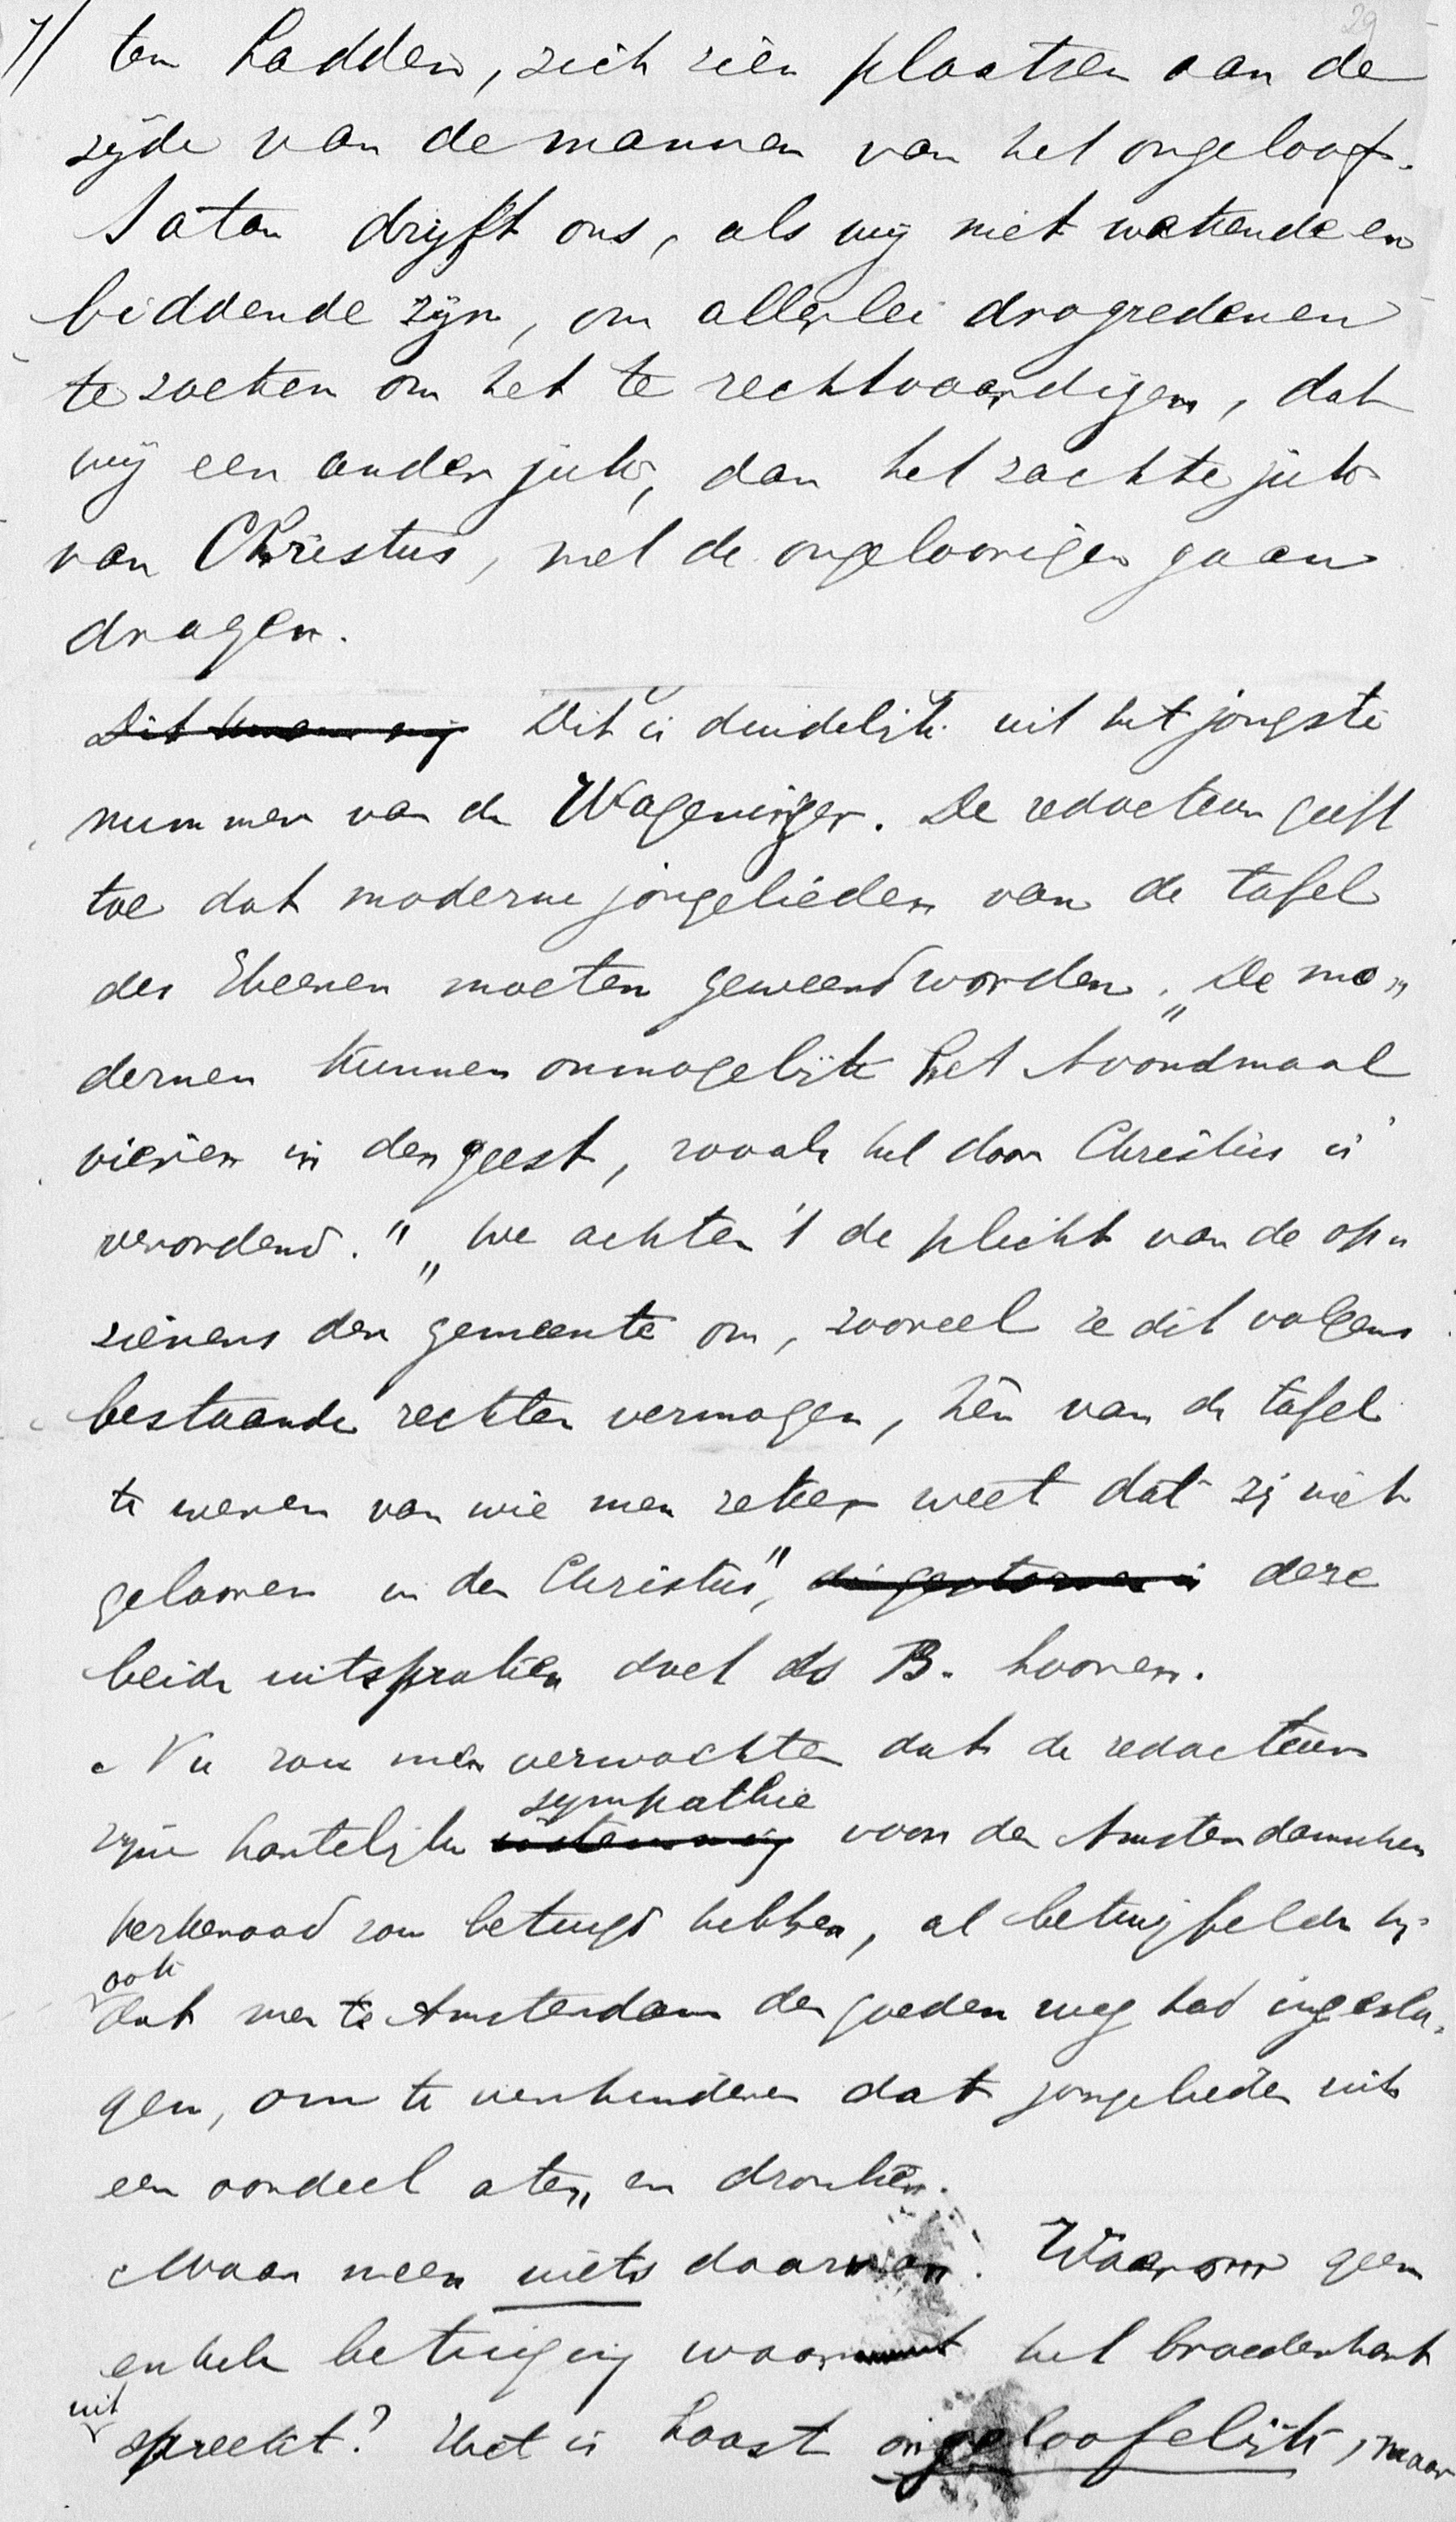 29
7/ ten hadden, zich zien plaatsen aan de
zijde van de mannen van het ongeloof.
Satan drijft ons, als wij niet wakende en
biddende zijn, om allerlei drogredenen
te zoeken om het te rechtvaardigen, dat
wij een ander juk, dan het zachte juk
van Christus, met de ongeloovigen gaan
dragen.
Dit kwam mij Dit is duidelijk uit het jongste
nummer van de Wageninger. De redacteur geeft
toe dat moderne jongelieden van de tafel
des Heeren moeten geweerd worden. „De mo„
dernen kunnen onmogelijk het Avondmaal
vieren in den geest, zooals het door Christus is
verordend." „We achten 't de plicht van de op„
zieners der gemeente om, zooveel ze dit volgens
bestaande rechten vermogen, hén van de tafel
te weren van wie men zeker weet dat zij niet
gelooven in den Christus", die gestorven is deze
beide uitspraken doet ds B. hooren.
Nu zou men verwachten dat de redacteur
sympathie
zijne hartelijke instemming voor den Amsterdamschen
kerkeraad zou betuigd hebben, al betwijfelde hij
ook
dat men te Amsterdam den goeden weg had ingesla„
gen, om te verhinderen dat jongelieden zich
een oordeel aten en dronken.
Maar neen niets daarvan. Waarom geen
enkele betuiging waar het broederhart
uit
spreekt? Het is haast ongeloofelijk, maar